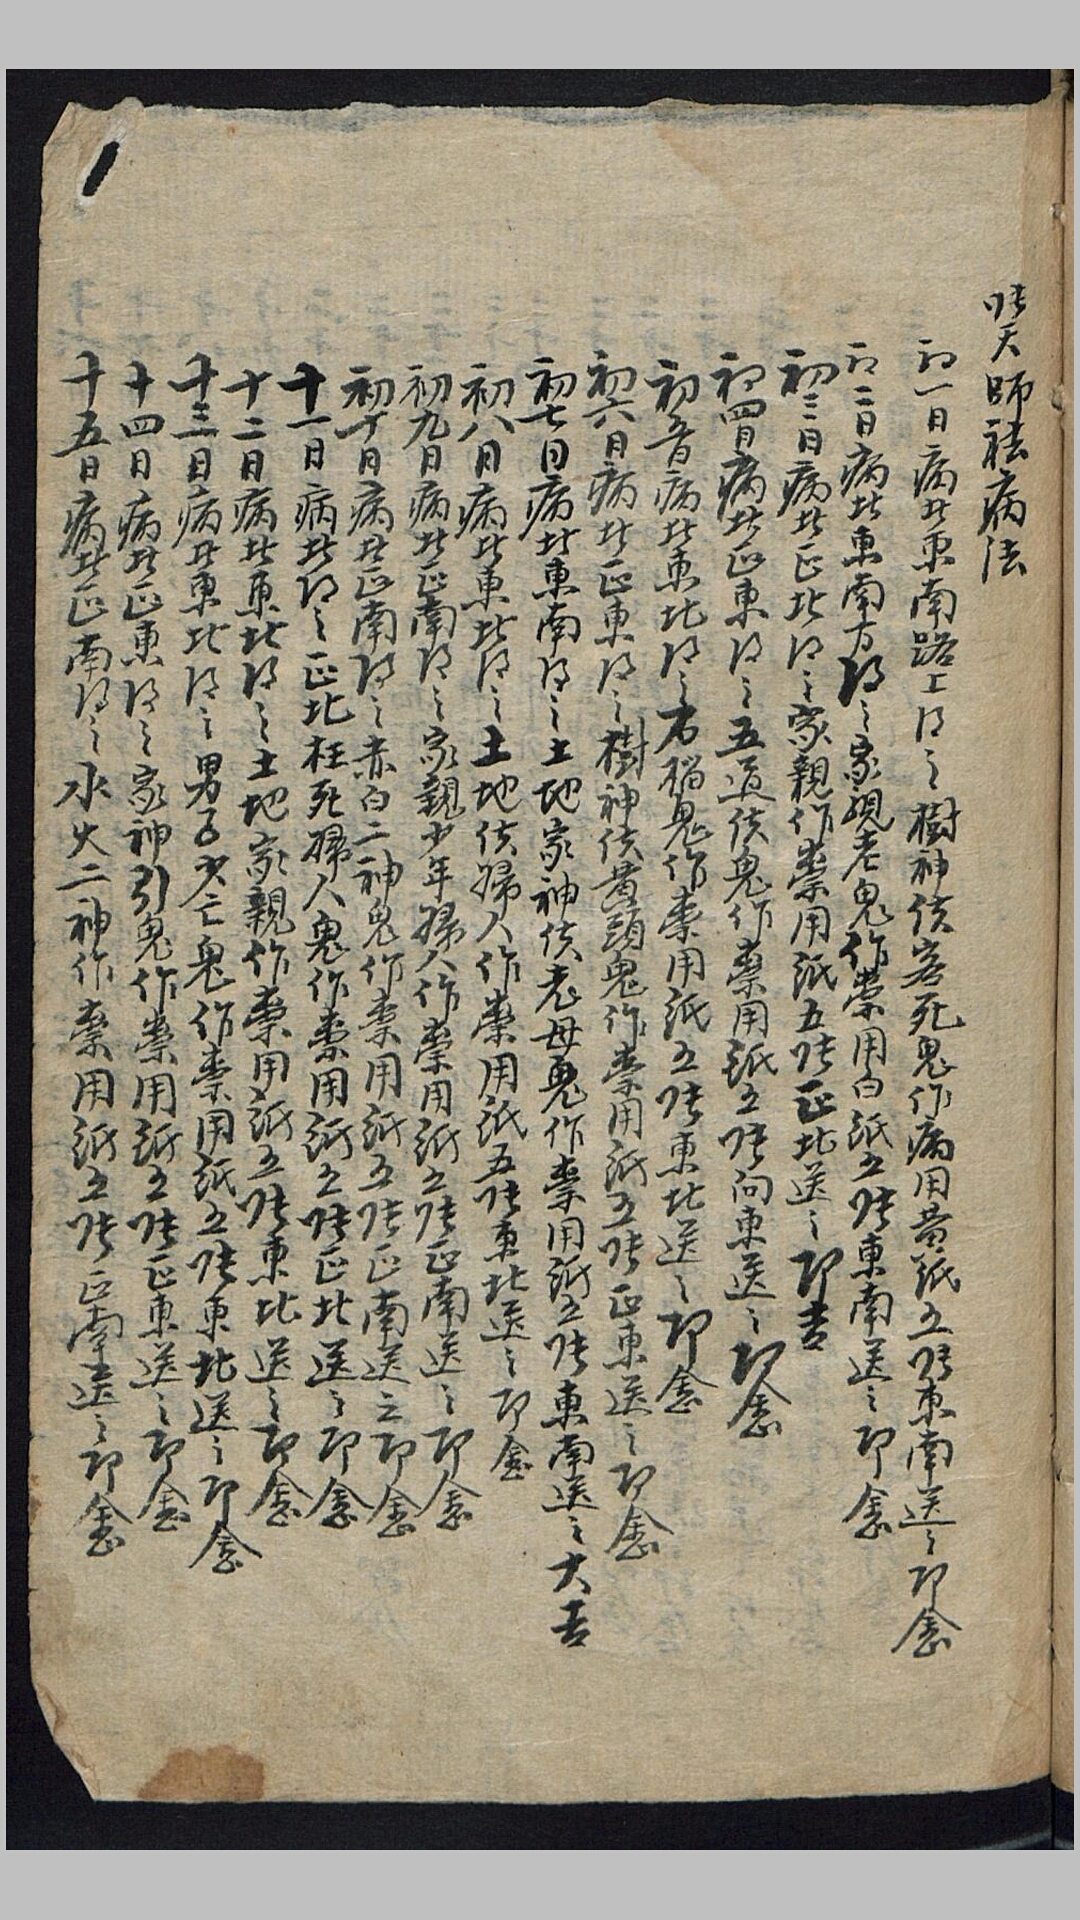 张天師祛病法
初一日病者東南路上得之樹神使客死鬼作病用黄紙五张東南送之即愈
初二日病者東南方得之家親老鬼作祟用白紙五张東南送之即愈
初三日病者正北得之家親作祟用紙五张正北送之即吉
初四日病者正東得之五道使鬼作祟用紙五张向東送之即愈
初五日病者東北得之鬼作祟用紙五张東北送之即愈
初六日病者正東得之樹神使黄頭鬼作祟用紙五张正東送之即愈
初七日病者東南得之土地家神使老母鬼作祟用紙五张東南送之大吉
初八日病者東北得之土地使婦人作祟用紙五张東北送之即愈
初九日病者正南得之家親少年婦人作祟用紙五张正南送之即愈
初十日病者正南得之赤白二神鬼作祟用紙五张正南送之即愈
十一日病者得之正北枉死婦人鬼作祟用紙五张正北送之即愈
十二日病者東北得之土地家親作祟用紙五张東北送之即愈
十三日病者東北得之男子少亡鬼作祟用紙五张東北送之即愈
十四日病者正東得之家神引鬼作祟用紙五张正東送之即愈
十五日病者正南得之水火二神作祟用紙五张正南送之即愈